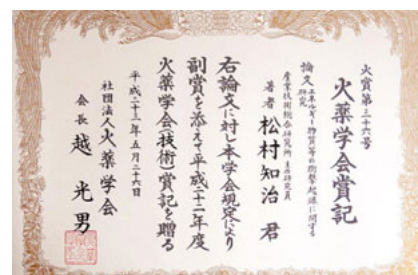 火賞第三十六号
火薬学会賞記
論文 エネルギー物質等の衝撃起爆に関する研究
産業技術総合研究所 主任研究員
著者 松村知治 君
右論文に対し本学会規定により
副賞を添えて平成二十二年度
火薬学会(技術)賞記を贈る
平成二十三年五月二十六日
社団法人火薬学会
会長 越 光男